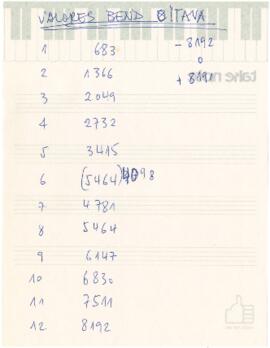 VALORES BEND 8ITAVA
1 683 - 8192
0
2 1366 + 8191
3 2049
4 2732
5 3415
6 (5464) 4098
7 4781
8 5464
9 6147
10 6830
11 7511
12 8192